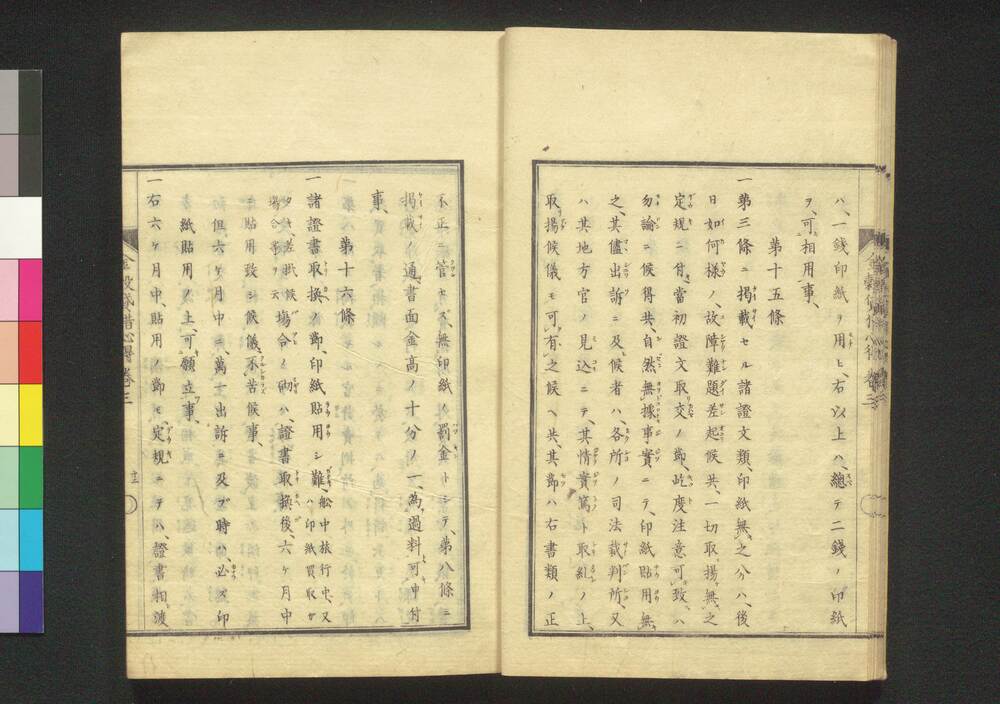 ハ、一錢印紙ヲ用ヒ、右以上ハ、總テ二錢ノ印紙
ヲ、可相用事、
第十五條
一第三條ニ掲載セル諸證文類、印紙無之分ハ、後
日如何樣ノ、故障難題差起候共、一切取揚無之
定規ニ付、當初證文取交ノ節、屹度注意可致、ハ
勿論ニ候得共、自然無據事實ニテ、印紙貼用無
之、其儘出訴ニ及候者ハ、各所ノ司法裁判所、又
ハ其地方官ノ見込ニテ、其情實篤ト取糺ノ上、
取揚候儀モ可有之候ヘ共、其節ハ右書類ノ正
不正ニ管セズ、無印紙ノ罰金トシテ、第八條ニ
掲載ノ通、書面金高ノ十分ノ一、為過料可申付
事、
第十六條
一諸證書取換ノ節、印紙貼用シ難、船中旅行中、又ハ印紙買取方
差支候場合ノ砌ハ、證書取換後、六ヶ月中
ニ貼用致シ候儀、不苦候事、
但、六ヶ月中ニ、萬一出訴ニ及ブ時ハ、必ズ印
紙貼用ノ上、可願立事、
一右六ヶ月中、貼用ノ節モ、定規ニテハ、證書相渡
卷三
十三